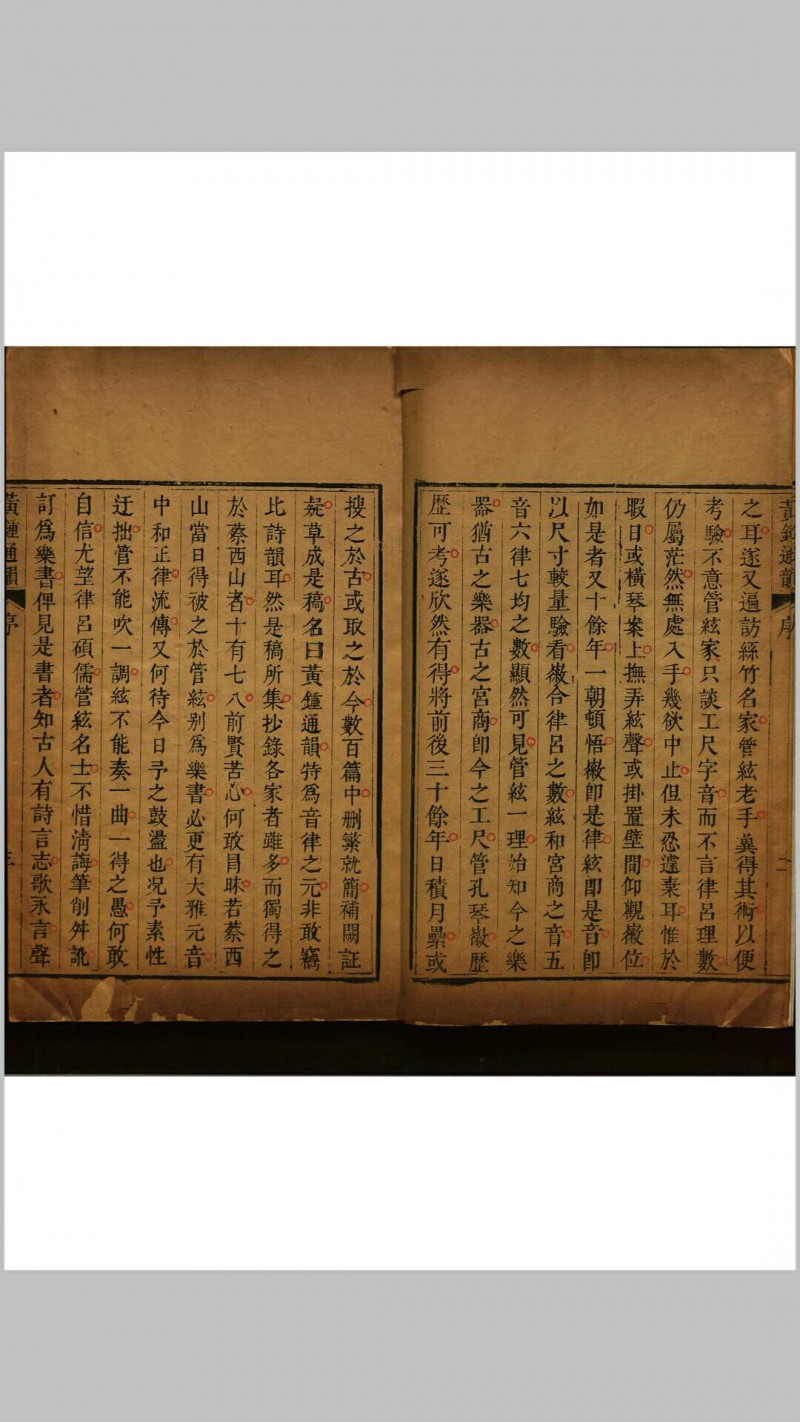 黃鍾通韻 序 二
之耳遂又遍訪絲竹名家管絃老手冀得其術以便
考驗不意管絃家只談工尺字音而不言律呂理數
仍屬茫然無處入手幾欲中止但未忍遽棄耳惟於
暇日或橫琴案上撫弄絃聲或掛置壁間仰觀徽位
如是者又十餘年一朝頓悟徽卽是律絃卽是音卽
以尺寸較量驗看徽合律呂之數絃和宮商之音五
音六律七均之數顯然可見管絃一理始知今之樂
器猶古之樂器古之宮商卽今之工尺管孔琴徽歷
歷可考遂欣然有得將前後三十餘年日積月纍或
搜之於古或取之於今數百篇中刪繁就簡補闕証
疑草成是稿名曰黃鍾通韻特爲音律之元非敢竊
比詩韻耳然是稿所集抄錄各家者雖多而獨得之
於蔡西山者十有七八前賢苦心何敢冒昧若蔡西
山當日得被之於管絃別爲樂書必更有大雅元音
中和正律流傳又何待今日予之鼓盪也况予素性
迂拙管不能吹一調絃不能奏一曲一得之愚何敢
自信尤望律呂碩儒管絃名士不惜淸誨筆削舛訛
訂爲樂書俾見是書者知古人有詩言志歌永言聲
黃鍾通韻 序 三